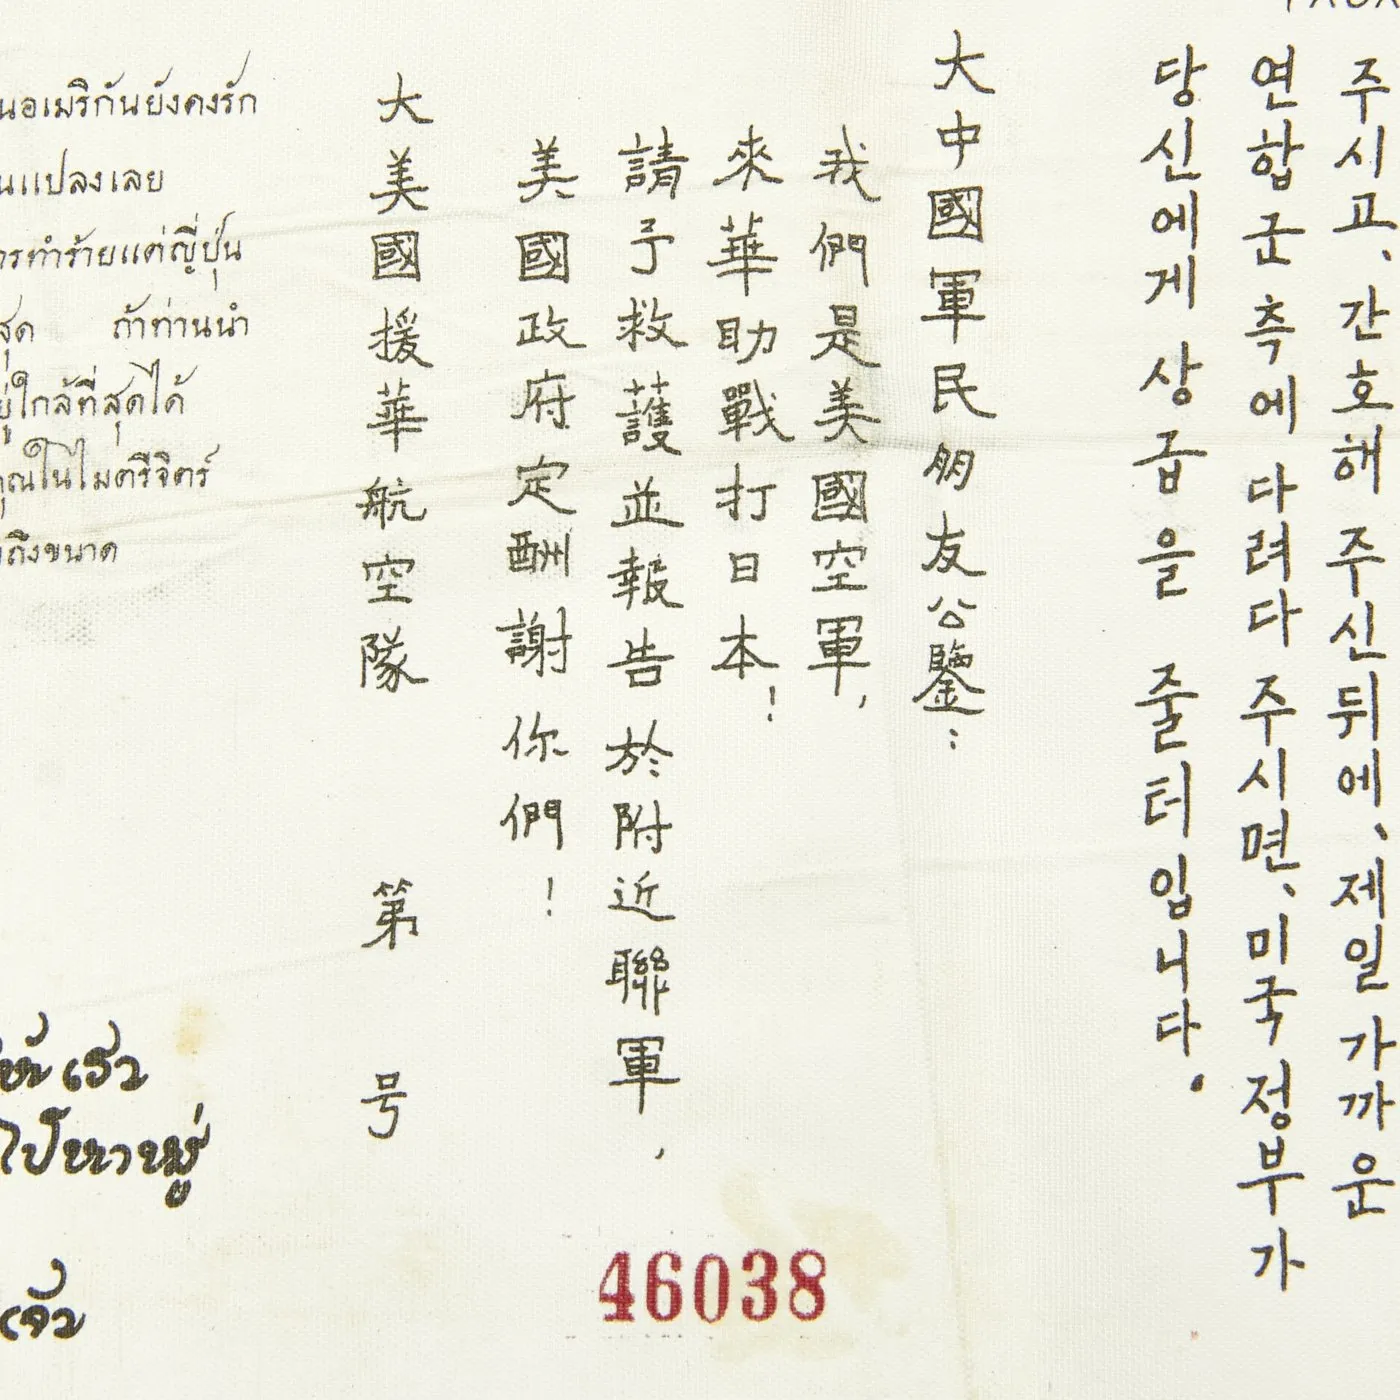 주시고、간호해 주신뒤에、제일 가까운
연합군측에 다려다 주시면、미국정부가
당신에게 상급을 줄터입니다.
大中國軍民朋友公鑒：
我們是美國空軍，
來華助戰打日本！
請予救護並報告於附近聯軍，
美國政府定酬謝你們！
大美國援華航空隊 第 号
นอเมริกันยังคงรัก
นแปลงเลย
ารทำร้ายแต่ญี่ปุ่น
สุด ถ้าท่านนำ
ยู่ใกล้ที่สุดได้
คุณในไมตรีจิตร์
ถึงขนาด
46038